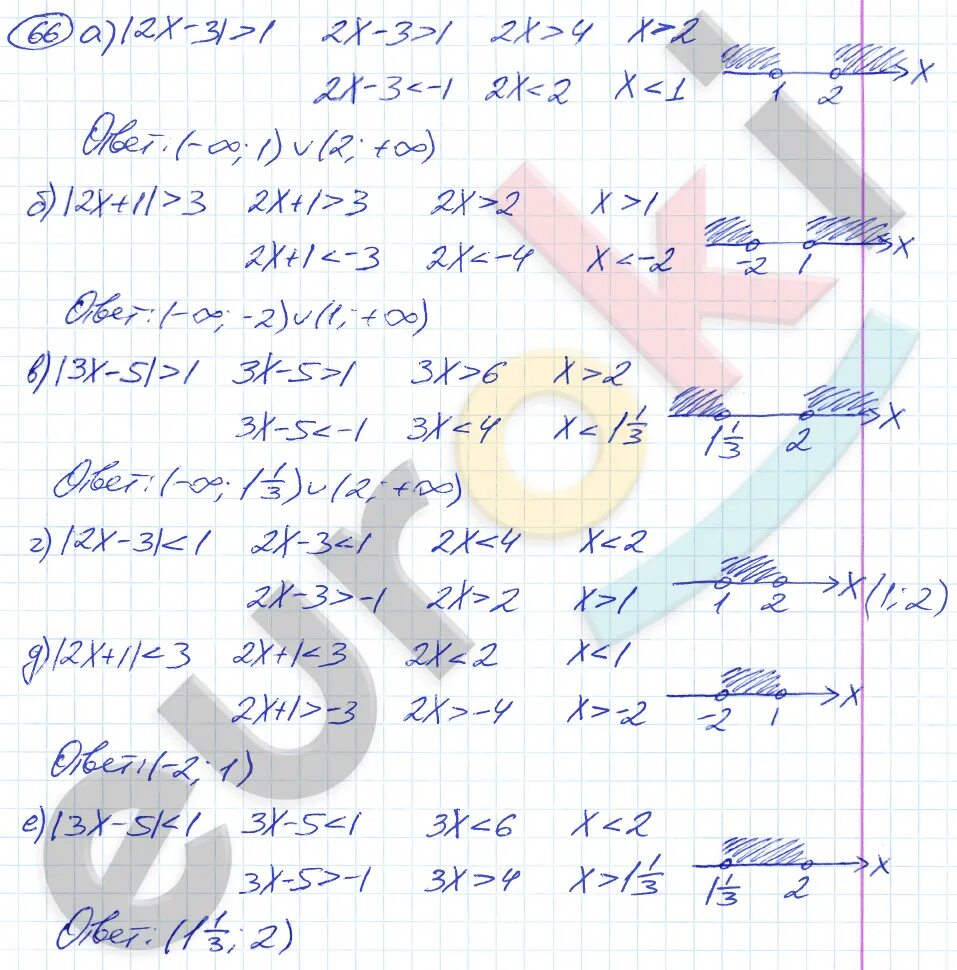 66 а) |2x-3|>1 2x-3>1 2x>4 x>2
2x-3<-1 2x<2 x<1
1 2 x
Ответ: (-∞; 1)∪(2; +∞)
б) |2x+1|>3 2x+1>3 2x>2 x>1
2x+1<-3 2x<-4 x<-2
-2 1 x
Ответ: (-∞; -2)∪(1; +∞)
в) |3x-5|>1 3x-5>1 3x>6 x>2
3x-5<-1 3x<4 x<1 1/3
1 1/3 2 x
Ответ: (-∞; 1 1/3)∪(2; +∞)
г) |2x-3|<1 2x-3<1 2x<4 x<2
2x-3>-1 2x>2 x>1
1 2 x (1; 2)
д) |2x+1|<3 2x+1<3 2x<2 x<1
2x+1>-3 2x>-4 x>-2
-2 1 x
Ответ: (-2; 1)
е) |3x-5|<1 3x-5<1 3x<6 x<2
3x-5>-1 3x>4 x>1 1/3
1 1/3 2 x
Ответ: (1 1/3; 2)
euroki